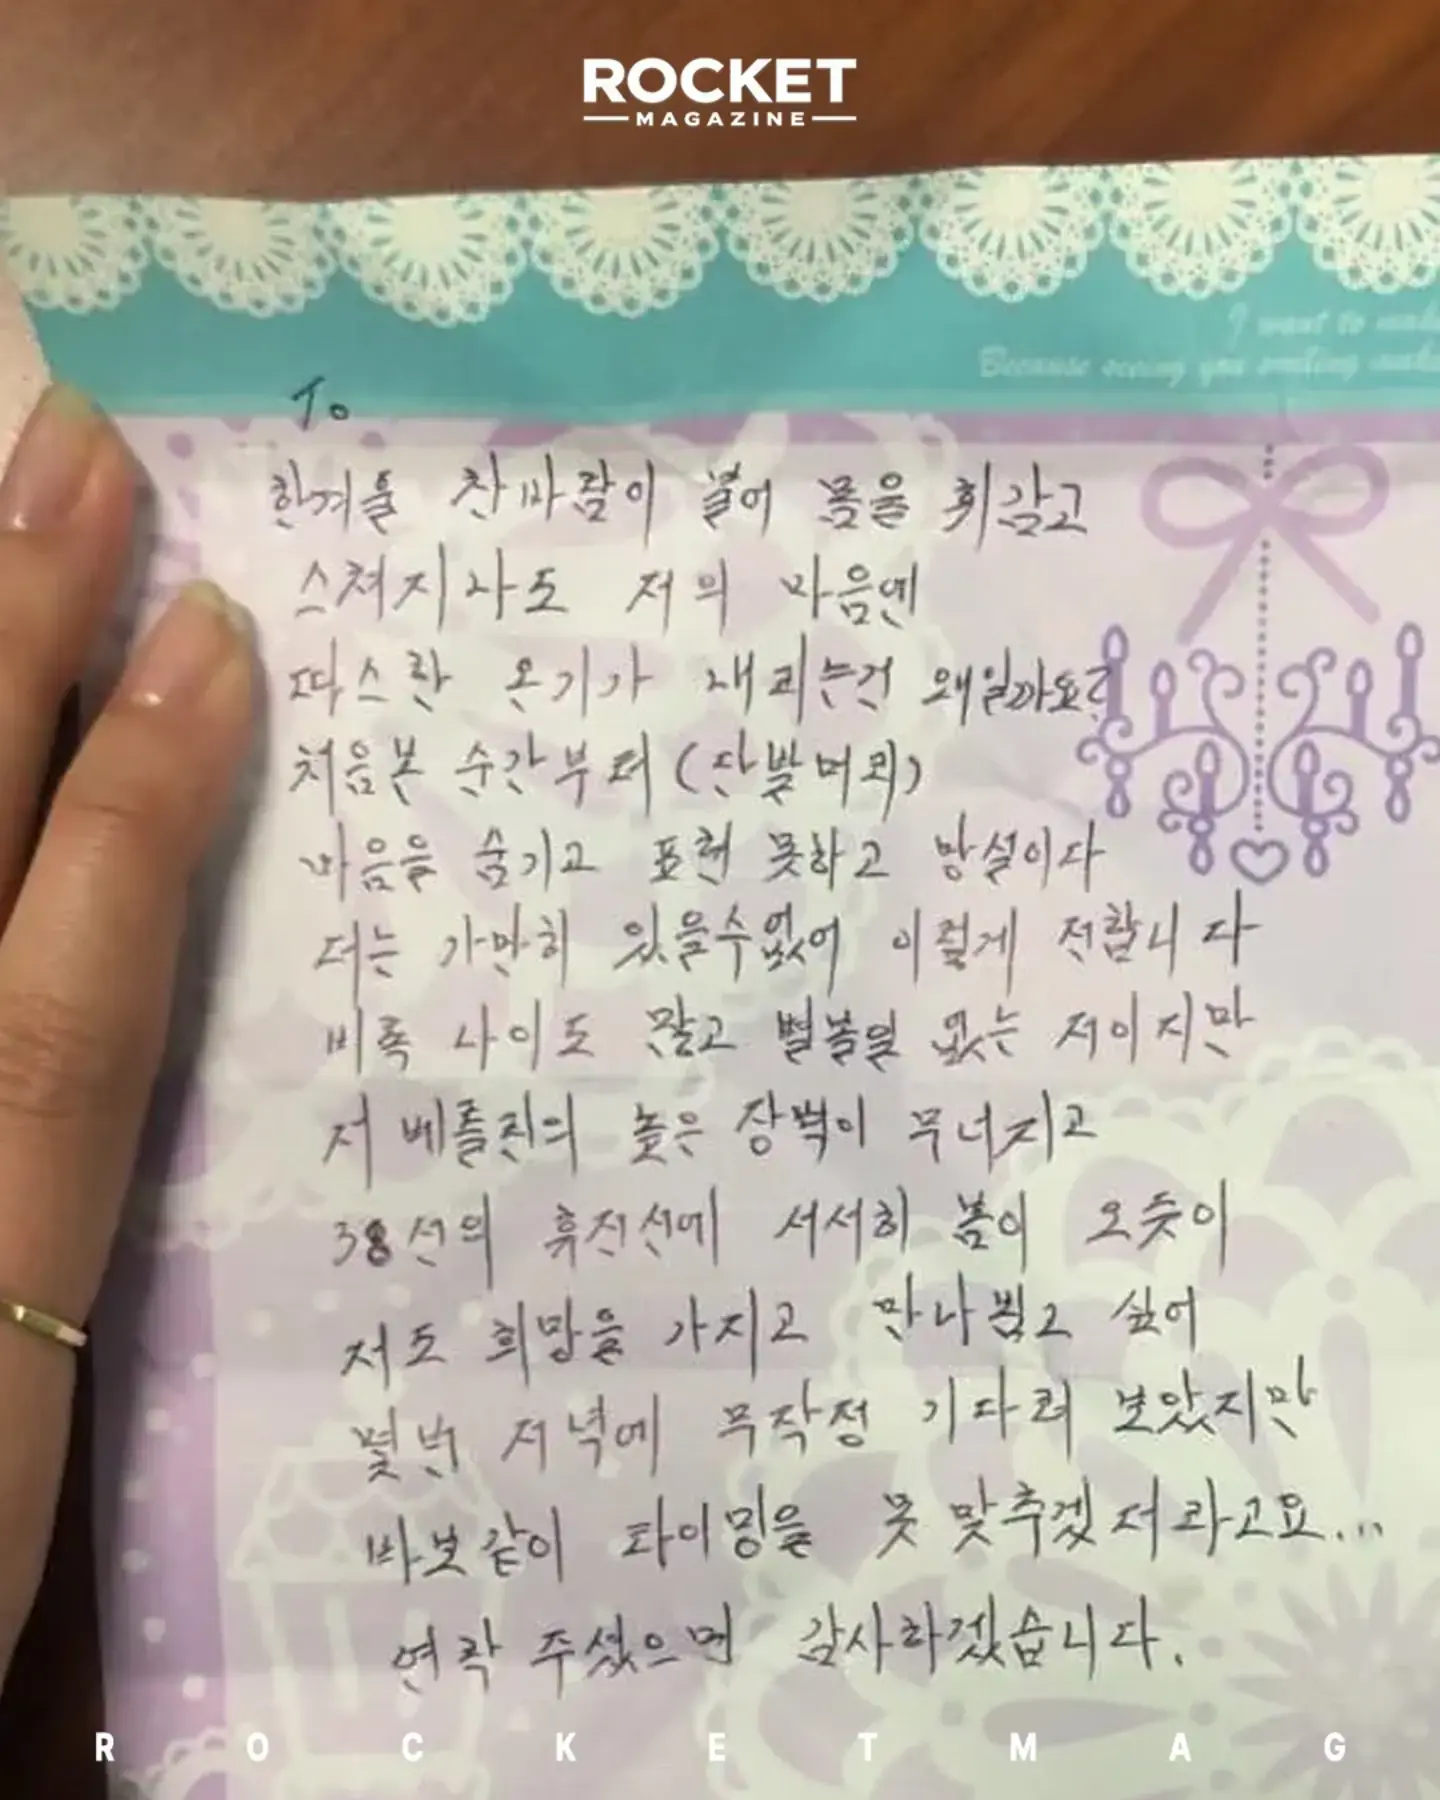 ROCKET
MAGAZINE
I want to make
Because seeing you smiling make
To
한겨울 찬바람이 불어 몸을 휘감고
스쳐지나도 저의 마음엔
따스한 온기가 내리는건 왜일까요?
처음본 순간부터 (단발머리)
마음을 숨기고 표현 못하고 망설이다
더는 가만히 있을수없어 이렇게 전합니다
비록 나이도 많고 별볼일 없는 저이지만
저 베를린의 높은 장벽이 무너지고
38선의 휴전선에 서서히 봄이 오듯이
저도 희망을 가지고 만나뵙고 싶어
몇번 저녁에 무작정 기다려 보았지만
바보같이 타이밍을 못 맞추겠더라고요...
연락 주셨으면 감사하겠습니다.
ROCKETMAG